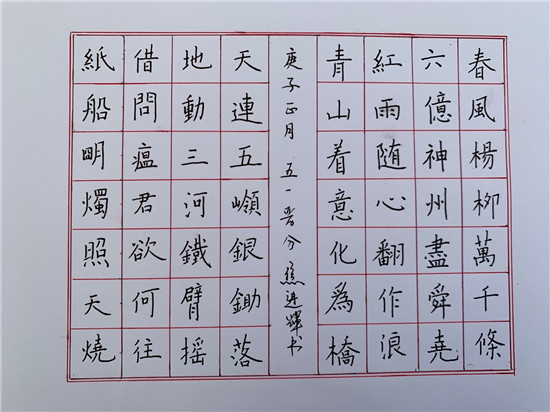 春風楊柳萬千條
六億神州盡舜堯
紅雨随心翻作浪
青山着意化爲橋
庚子正月 五一 分 焦进輝书
天連五嶺銀鋤落
地動三河鐵臂摇
借問瘟君欲何往
紙船明燭照天燒